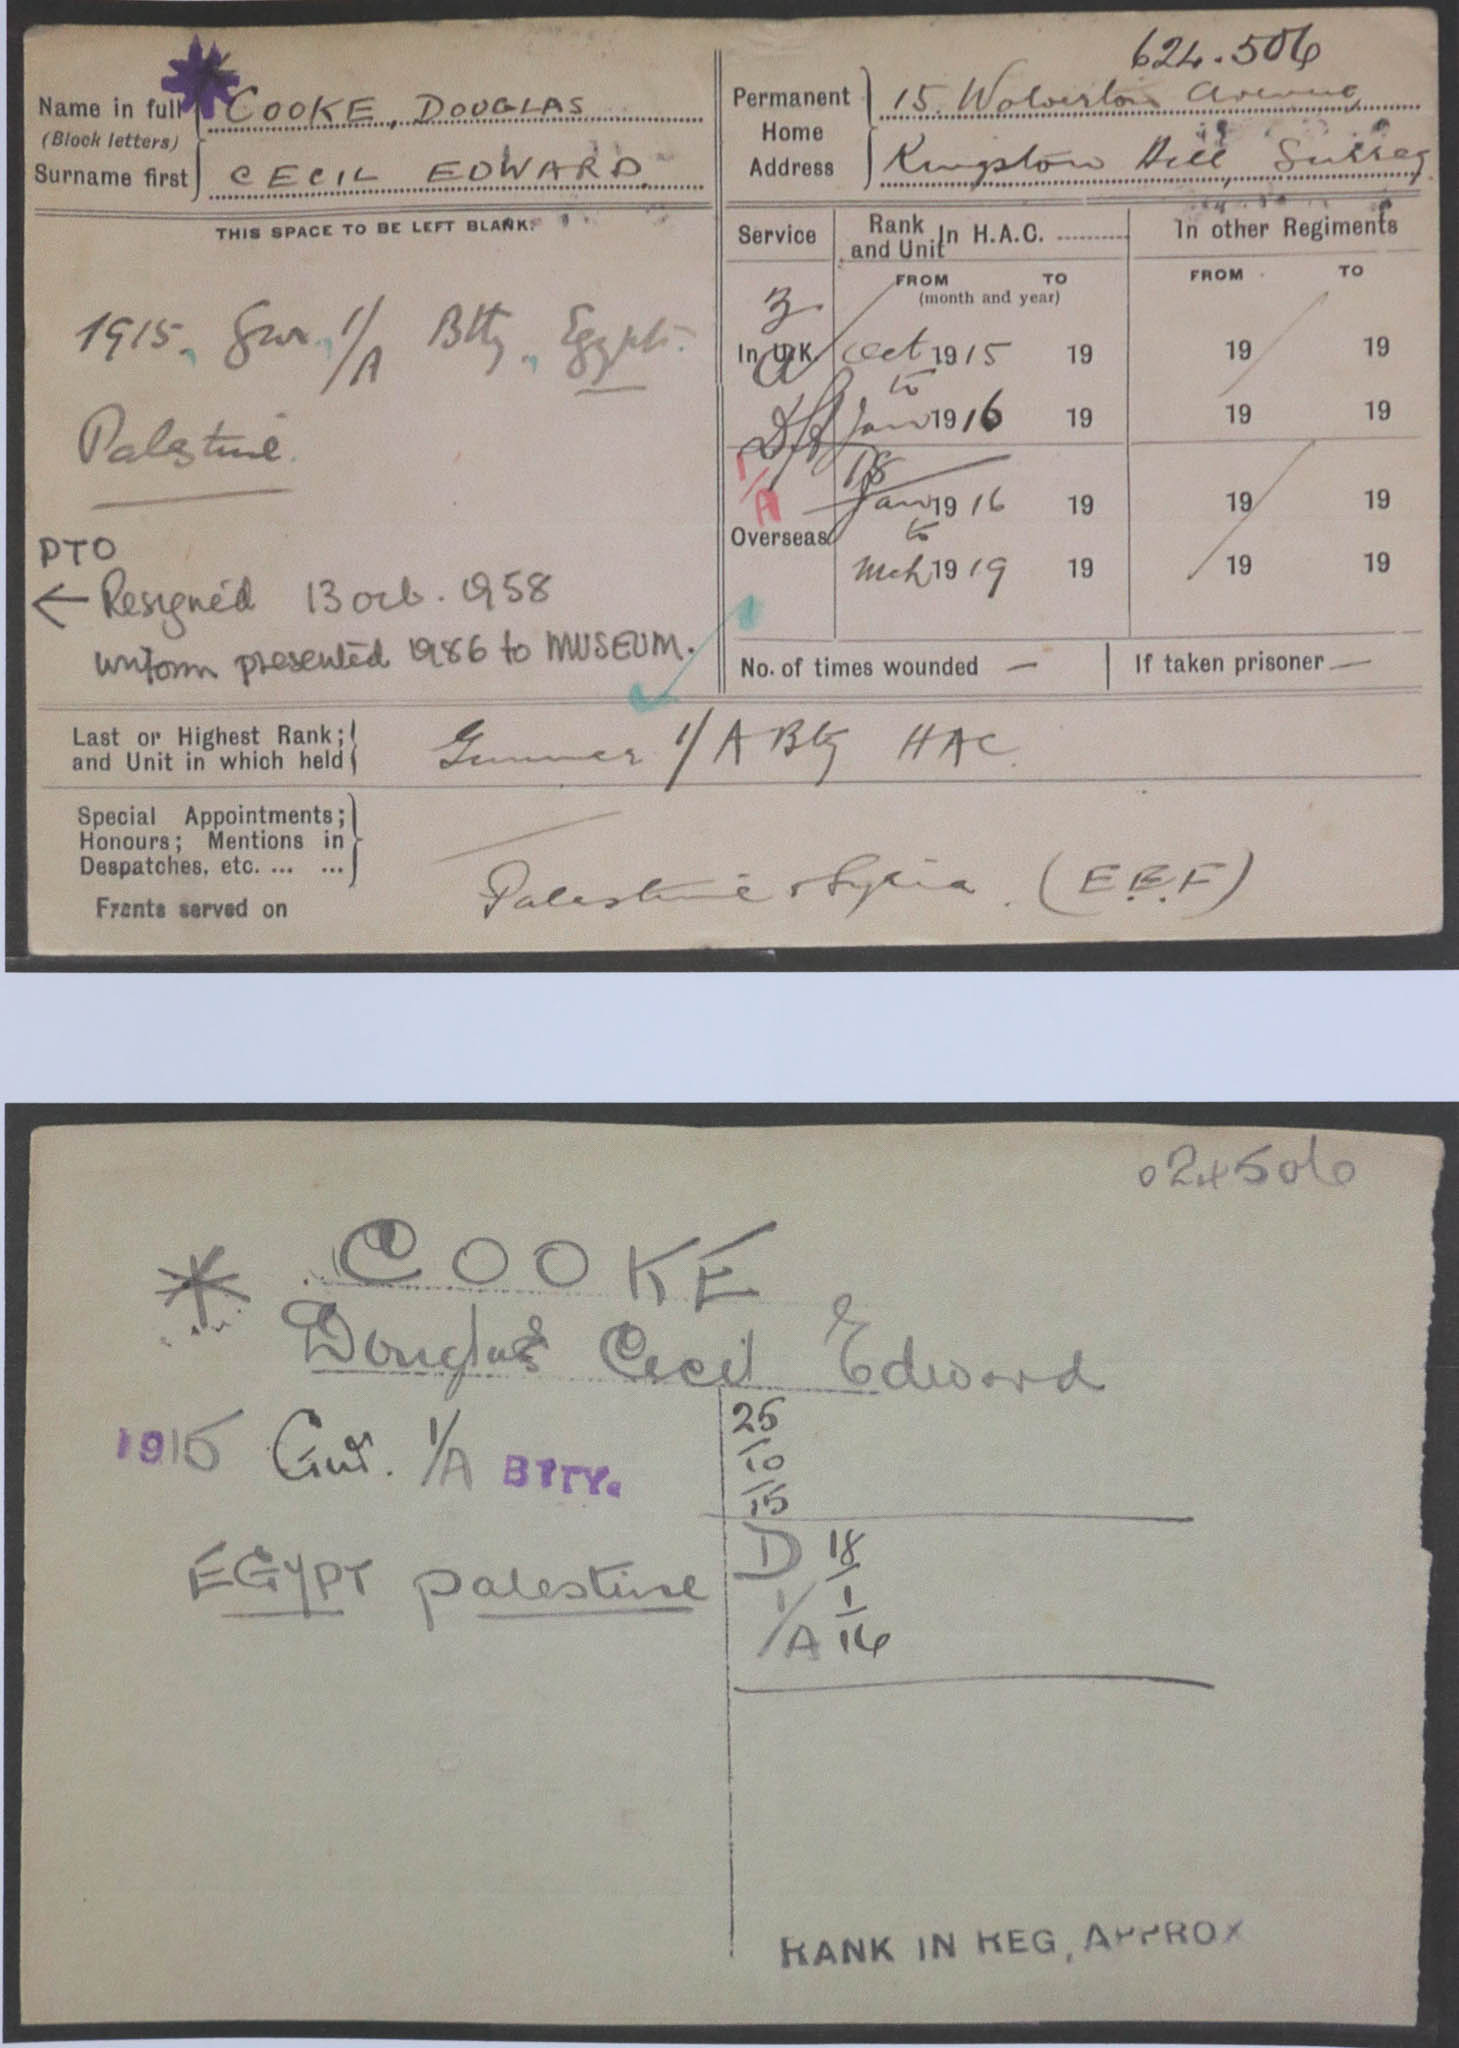 624.506
Name in full COOKE, DOUGLAS
(Block letters)
Surname first CECIL EDWARD
Permanent Home Address 15 Wolverton Avenue
Kingston Hill, Surrey
THIS SPACE TO BE LEFT BLANK.
1915, Gnr, 1/A Btty, Egypt.
Palestine.
PTO
← Resigned 13 Oct. 1958
uniform presented 1986 to MUSEUM.
Service Rank and Unit In H.A.C. In other Regiments
FROM TO FROM TO
(month and year)
In U.K. Oct 1915 19 19 19
to
Jan 1916 19 19 19
1/A
18
Overseas Jan 1916 19 19 19
to
Mch 1919 19 19 19
No. of times wounded — If taken prisoner —
Last or Highest Rank; and Unit in which held Gunner 1/A Bty HAC
Special Appointments;
Honours; Mentions in
Despatches, etc. ... ...
Fronts served on Palestine & Syria. (E.E.F)
624506
COOKE
Douglas Cecil Edward
1915 Gnr. 1/A BTTY.
25
10
15
EGYPT Palestine
D 18
1
1/A 16
RANK IN REG, APPROX